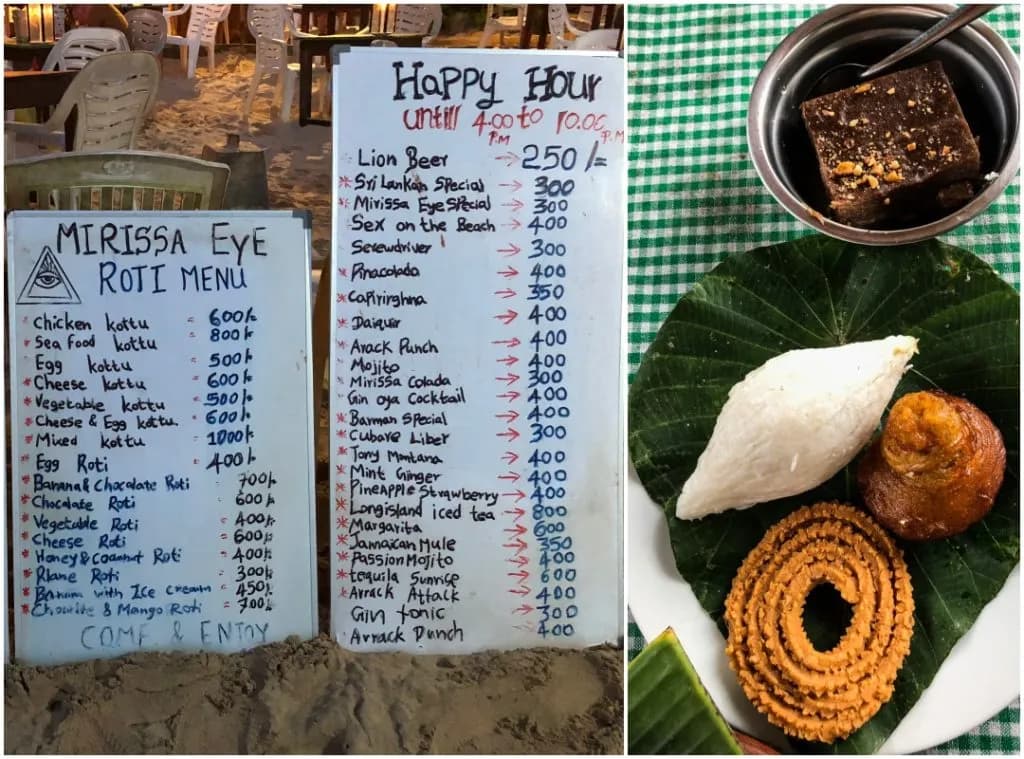 MIRISSA EyE
ROTI MENU
Chicken kottu = 600/-
Sea Food kottu = 800/-
Egg kottu = 500/-
Cheese kottu = 600/-
Vegetable kottu = 500/-
Cheese & Egg kottu. = 600/-
Mixed kottu = 1000/-
Egg Roti = 400/-
Banana & Chocolate Roti = 700/-
Chocolate Roti = 600/-
Vegetable Roti = 400/-
Cheese Roti = 600/-
Honey & Coconut Roti = 400/-
Plane Roti = 300/-
with Ice cream = 450/-
& Mango Roti = 700/-
COME & ENJOY
HAPPy HOUR
untill 4.00 to 10.00
P.M P.M
Lion Beer → 250/=
Sri Lankan Special → 300
Mirissa Eye Special → 300
Sex on the Beach → 400
Screwdriver → 300
Pinacolada → 400
→ 350
→ 400
Arack Punch → 400
Mojito → 400
Mirissa Colada → 300
Gin oya Cocktail → 400
Barman Special → 400
Cubare Liber → 300
Tony Montana → 400
Mint Ginger → 400
Pineapple Strawberry → 400
Longisland iced tea → 800
Margarita → 600
Jamaican Mule → 350
Passion Mojito → 400
tequila Sunrise → 600
Arrack Attack → 400
Gin tonic → 300
Arrack Punch → 400